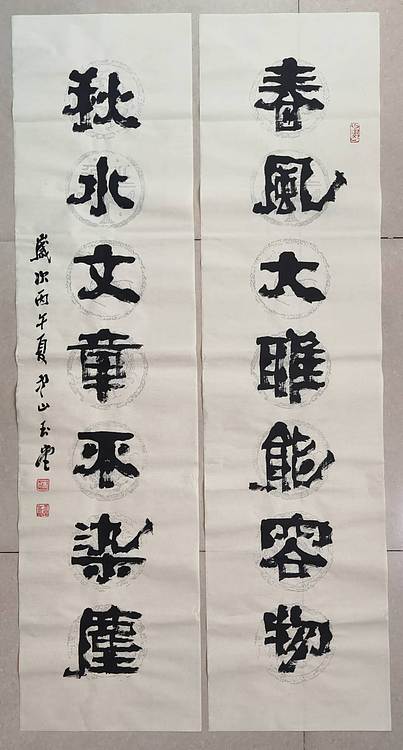 春風大雅能容物
秋水文章不染塵
歲次丙午夏山玉堂